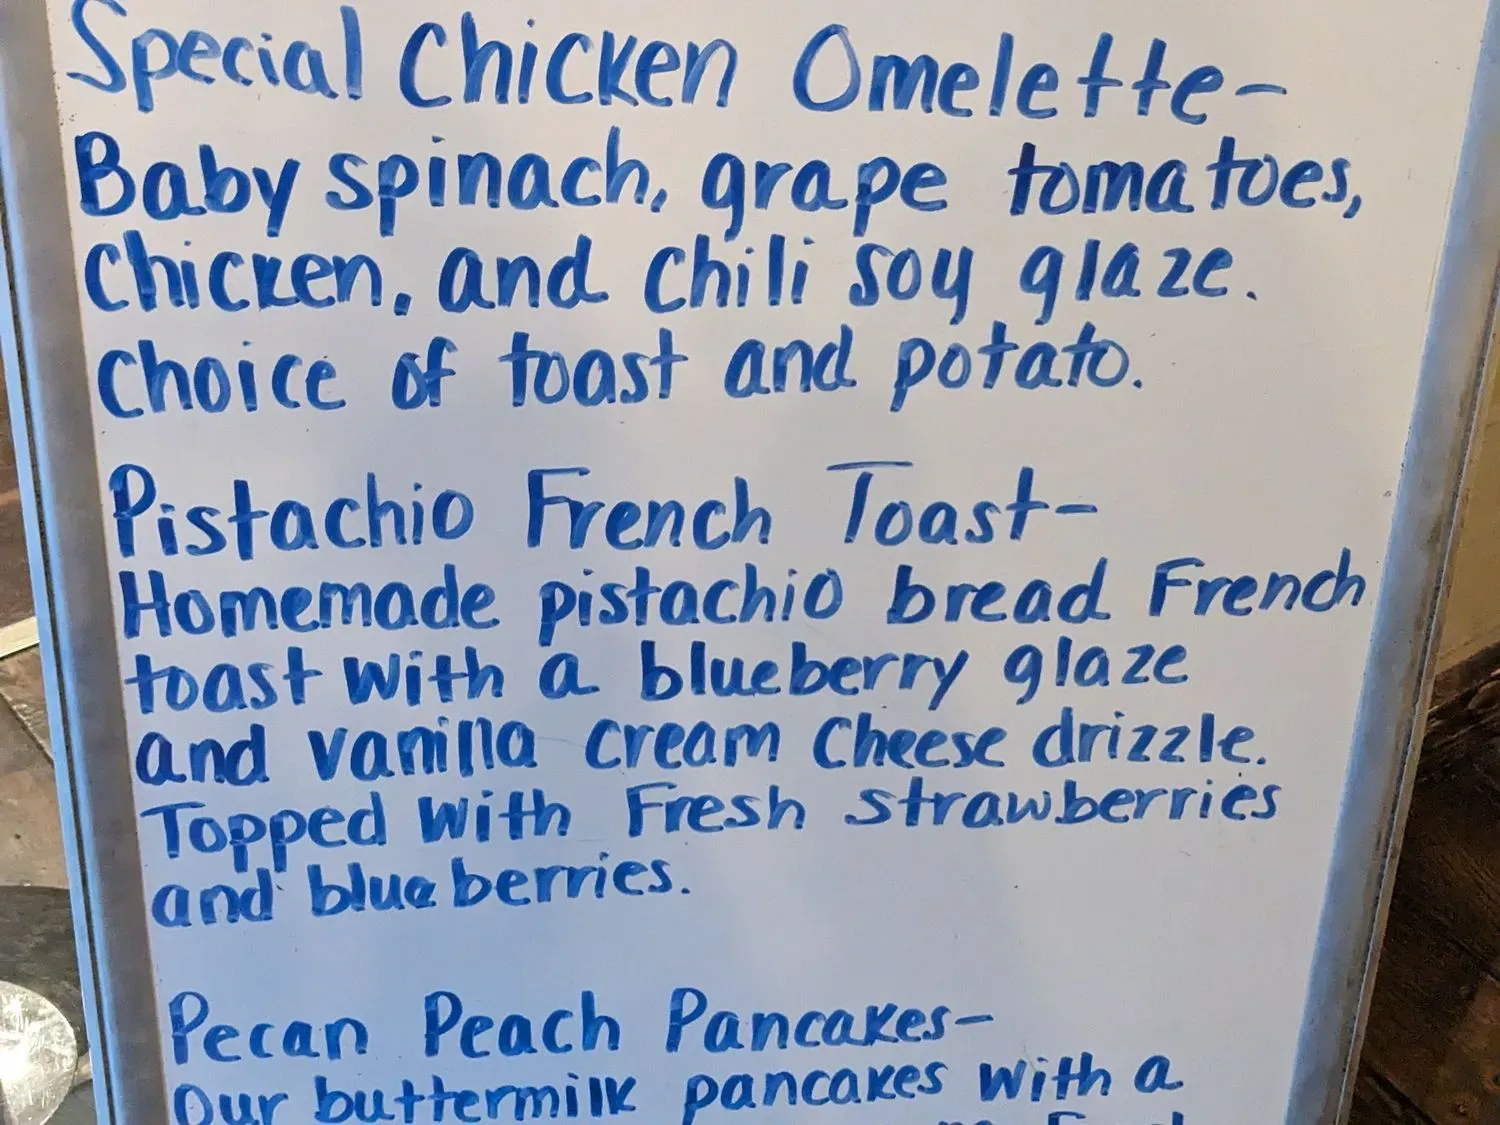 Special Chicken Omelette-
Baby spinach, grape tomatoes,
Chicken, and chili soy glaze.
Choice of toast and potato.
Pistachio French Toast-
Homemade pistachio bread French
toast with a blueberry glaze
and vanilla cream cheese drizzle.
Topped with Fresh strawberries
and blueberries.
Pecan Peach Pancakes-
Our buttermilk pancakes with a